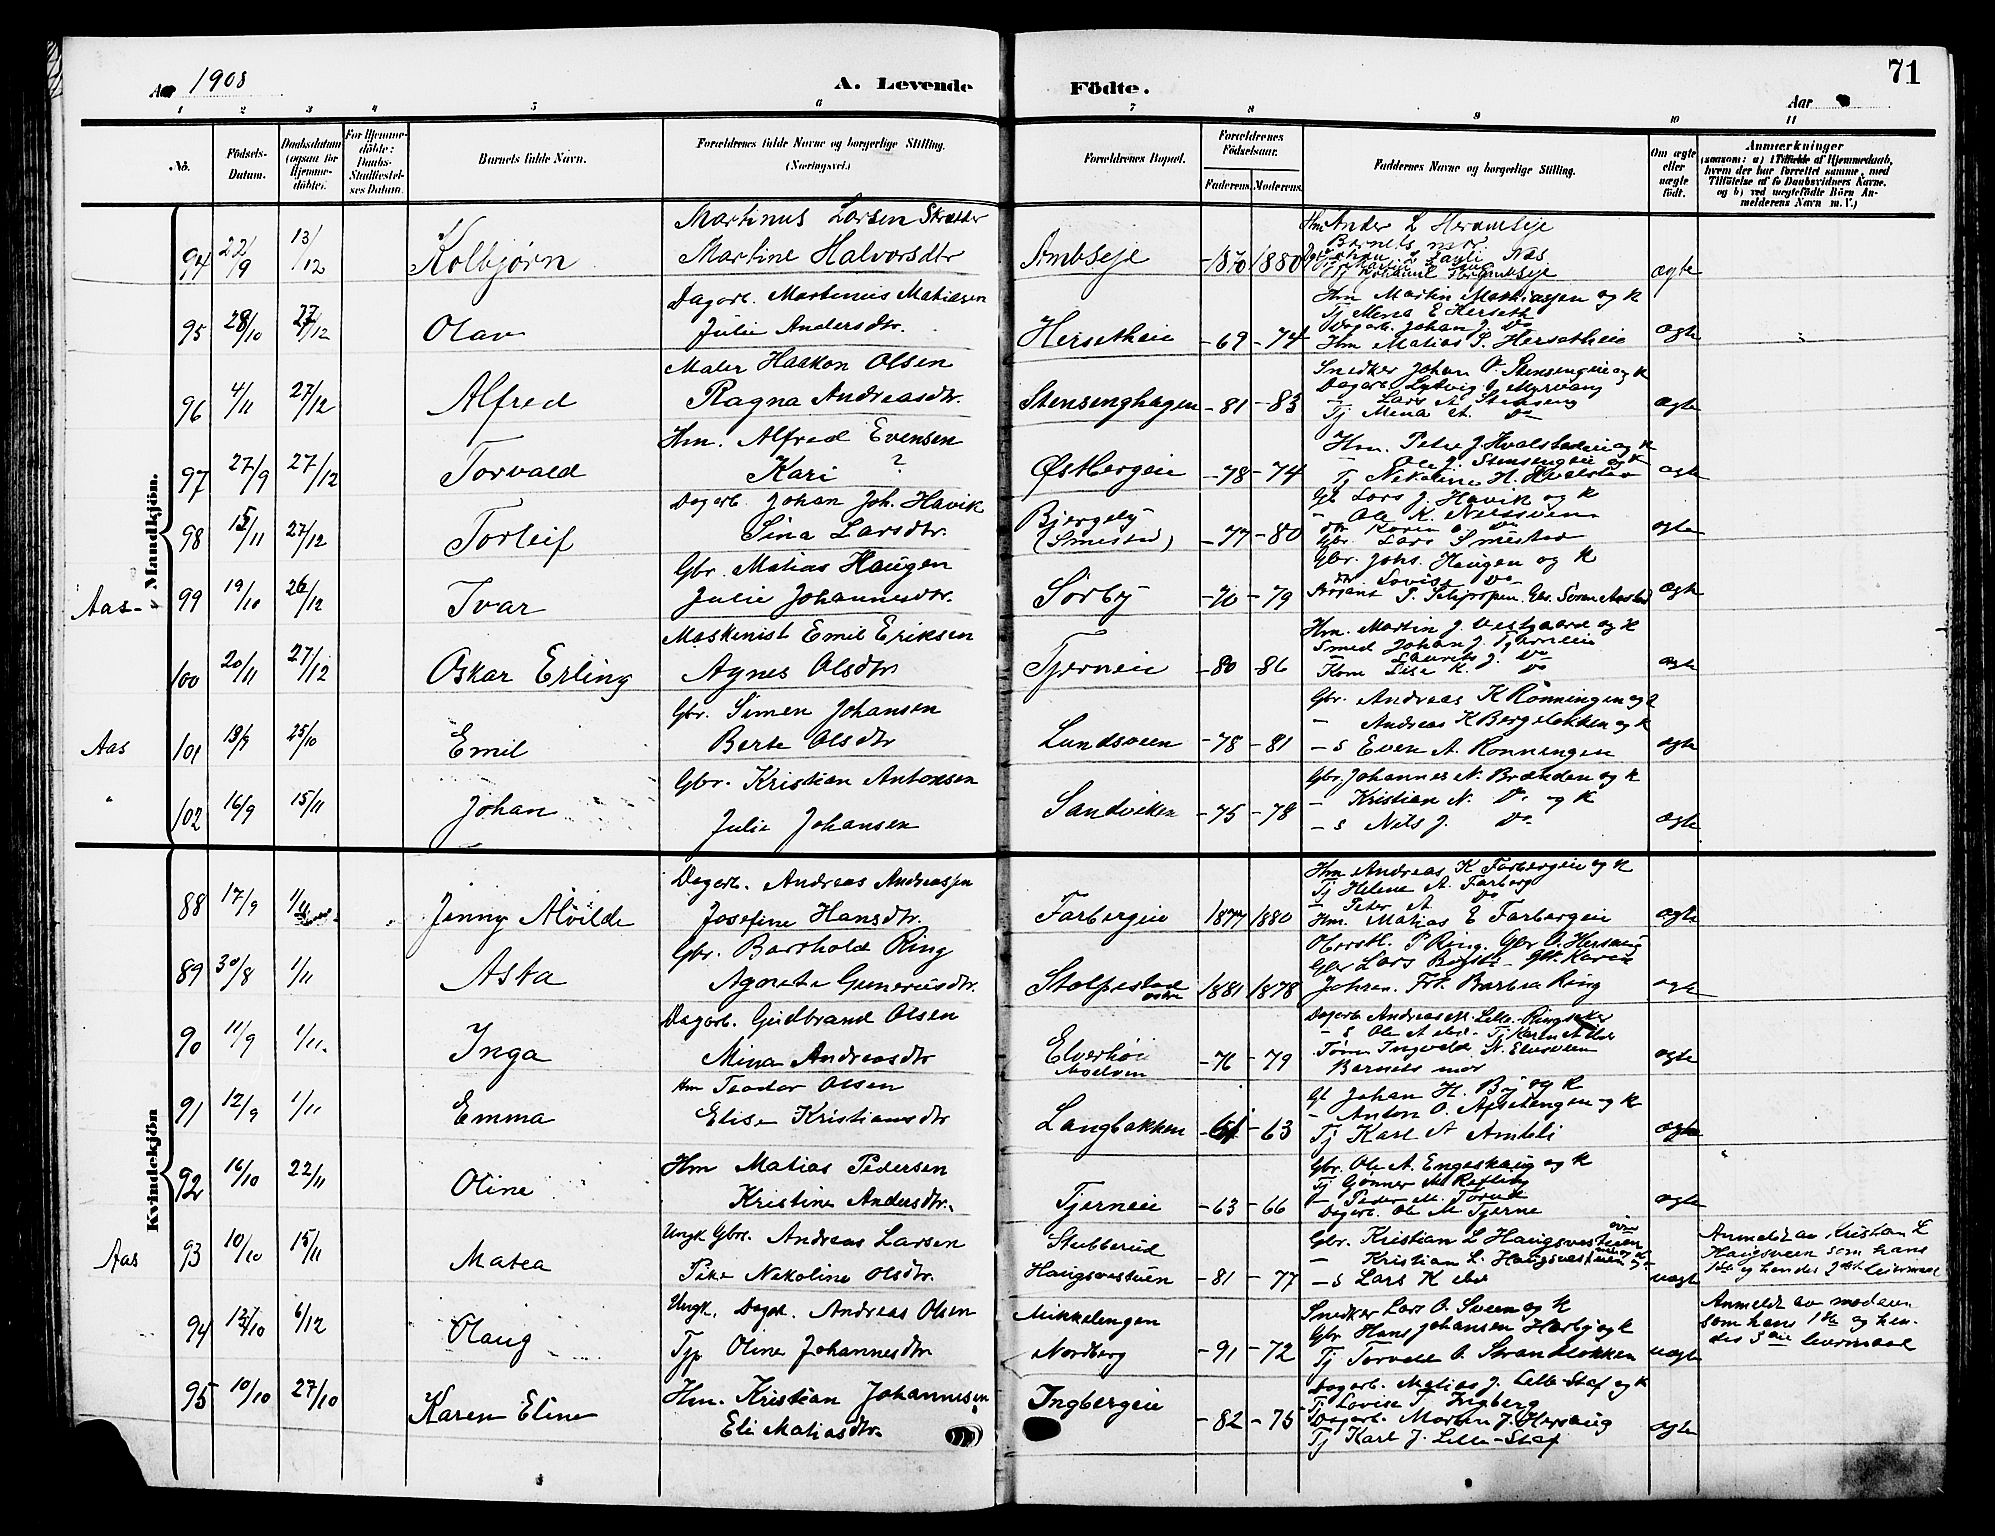 Aar 1908
A. Levende Födte.
71
Aar
1 2 3 4 5 6 7 8 9 10 11
No.
Födsels-Datum.
Daabsdatum (ogsaa for Hjemme-döbte).
For Hjemme-döbte: Daabs-Stadfæstelses Datum.
Barnets fulde Navn.
Forældrenes fulde Navne og borgerlige Stilling. (Næringsvei.)
Forældrenes Bopæl.
Forældrenes Fødselsaar.
Faderens. Moderens.
Faddernes Navne og borgerlige Stilling.
Om ægte eller uægte født.
Anmærkninger
(saasom: a) i Tilfælde af Hjemmedaab, hvem der har forrettet samme, med Tilföielse af to Daabsvidners Navne, og b) ved uægtefödte Börn Anmelderens Navn m. V.)
Mandkjön.
94 22/9 13/12 Kolbjørn
Martinus Larsen Skrædder
Martine Halvorsdtr
Ambseje -1870 1880
Barnets mor.
ægte
95 28/10 27/12 Olav
Dagarb. Martinus Matiasen
Julie Andersdtr.
Hersetheie -69 -74
Hm Martin Mathiassen og k
Tj Mena E Herseth
Dagarb. Johan J. Do
Hm Matias P. Hersetheie
ægte
96 4/11 27/12 Alfred
Maler Haakon Olsen
Ragna Andreasdtr.
Stensenghagen -81 -83
Snedker Johan O. Stensengeie og k
Dagarb. Lydvig J Myrvang
- Lars A Stenseng
Tj Mena A. Do
ægte
97 27/9 27/12 Torvald
Hm. Alfred Evensen
Kari ?
Østbergeie -78 -74
Hm. Peter J. Hvalstadeie og k
Ole J. Stensengeie og k
Tj Nikoline H. Hvalstad
ægte
98 15/11 27/12 Torleif
Dagarb. Johan Joh. Havik
Sina Larsdtr.
Bjergeby (Smestad) -77 -80
Gb Lars J. Havik og k
- Ole K. Nilssveen
Gbr. Lars Smestad
ægte
Aas- 99 19/10 26/12 Ivar
Gbr. Matias Haugen
Julie Johannesdtr.
Sørby -70 -79
Gbr. Johs. Haugen og k
dtr Lovise Do
ægte
100 20/11 27/12 Oskar Erling
Maskinist Emil Eriksen
Agnes Olsdtr
Tjerneie -80 -86
Hm. Martin J. Vestgaard og k
Smed Johan J. Tjerneie
Laurits J. Do
Kone Lise K. Do
ægte
Aas 101 13/9 25/10 Emil
Gbr. Simen Johansen
Berte Olsdtr
Lundsveen -78 -81
Gbr. Andreas K Rønningen og k
- Andreas K Bergeløkken og k
- s Even A. Rønningen
ægte
" 102 16/9 15/11 Johan
Gbr. Kristian Antonsen
Julie Johansen
Sandviken -75 -78
Gbr. Johannes N. Brænden og k
- Kristian N. Do og k
- s Nils J. Do
ægte
Kvindekjön
88 17/9 1/11 Jenny Alvilde
Dagarb. Andreas Andreassen
Josefine Hansdtr.
Farbergeie 1877 1880
Hm Andreas K Farbergeie og k
Tj Helene A. Farberg
- Peter A Do
Hm. Matias E Farbergeie
ægte
89 30/8 1/11 Asta
Gbr. Barthold Ring
Agnete Gunerusdtr.
Stolpestad østre 1881 1878
Oberstl. P Ring. Gbr O. Hersaug
Johan. Frk Barbra Ring
ægte
90 11/9 1/11 Inga
Dagarb. Gudbrand Olsen
Mina Andreasdtr
Elverhøi Moelven -76 -79
Dagarb Andreas M. Lille-Ringsaker
Barnets mor
ægte
91 12/9 1/11 Emma
Hm Teodor Olsen
Elise Kristiansdtr
Langbakken -61 -63
Gb Johan H. By og k
- Anton O. Afsetengen og k
Tj Karl A Amleli
ægte
92 16/10 22/11 Oline
Hm Matias Pedersen
Kristine Andersdtr.
Tjerneie -63 -66
Gbr. Ole A. Engeshaug og k
Tj Gønner M. Refling
- Peder M. Torud
Dagarb. Ole M Tjerne
ægte
Aas 93 10/10 15/11 Matea
Ungk Gbrs. Andreas Larsen
Pike Nikoline Olsdtr.
Stubberud
Haugsvestuen -81 -77
Gbr. Kristian L Haugsvestuen øvre
- Kristian L. Haugsvestuen
- s Lars K ibd
uægte
Anmeldt av Kristian L Haugsveen som hans 1ste og hendes 2det leiermaal
94 12/10 6/12 Olaug
Ungk. Dagarb. Andreas Olsen
Tjp Oline Johannesdtr.
Mikkelengen
Nordberg -91 -72
Snedker Lars O. Sveen og k
Gbr Hans Johansen Hørby og k
Tj Torvald O. Strandløkken
uægte
Anmeldt av moderen som hans 1ste og hendes 3die leiermaal
95 10/10 27/10 Karen Eline
Hm. Kristian Johannesen
Eli Matiasdtr.
Ingbergeie -82 -75
Dagarb. Matias J. Lille-Staf og k
Tj Lovise P. Ingberg
Dagarb. Martin J. Hersaug
Tj Karl J. Lille-Staf
ægte